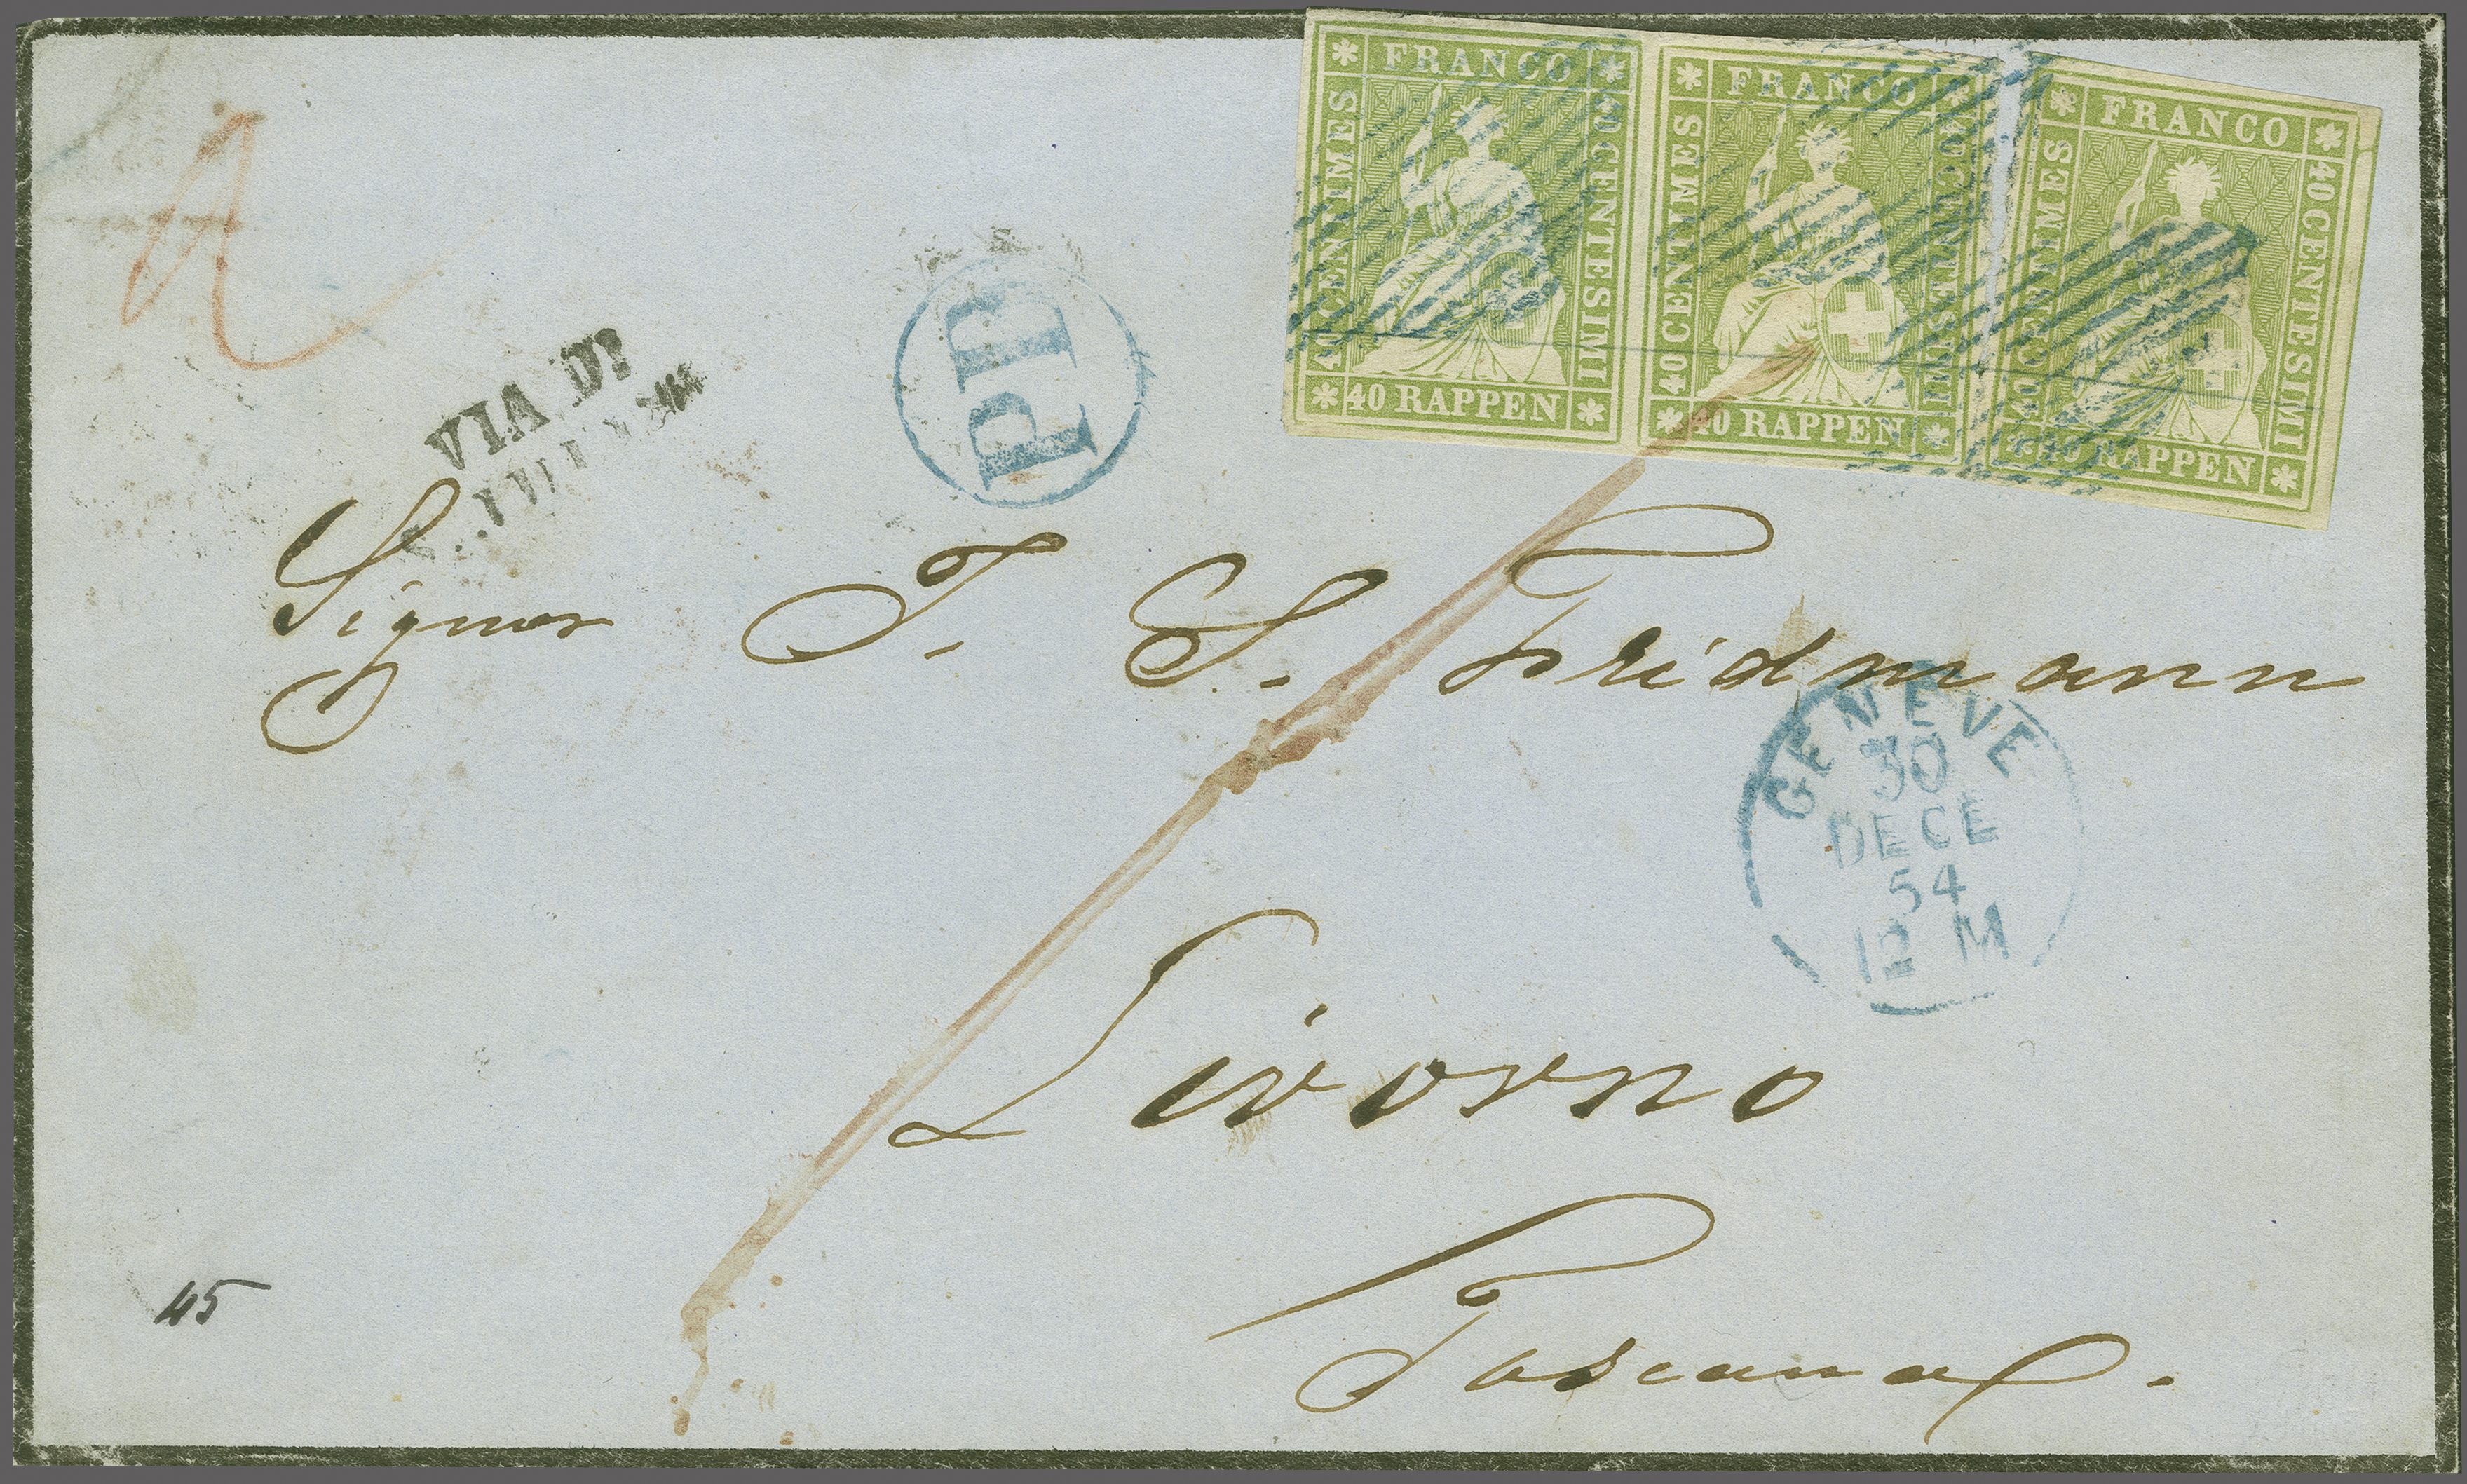 FRANCO
40 CENTIMES
40 CENTESIMI
40 RAPPEN
FRANCO
40 CENTIMES
40 CENTESIMI
40 RAPPEN
FRANCO
40 CENTIMES
40 CENTESIMI
40 RAPPEN
PP
VIA DI
Signor J. S. Fridmann
GENEVE
30
DECE
54
12 M
Livorno
Toscana.
45